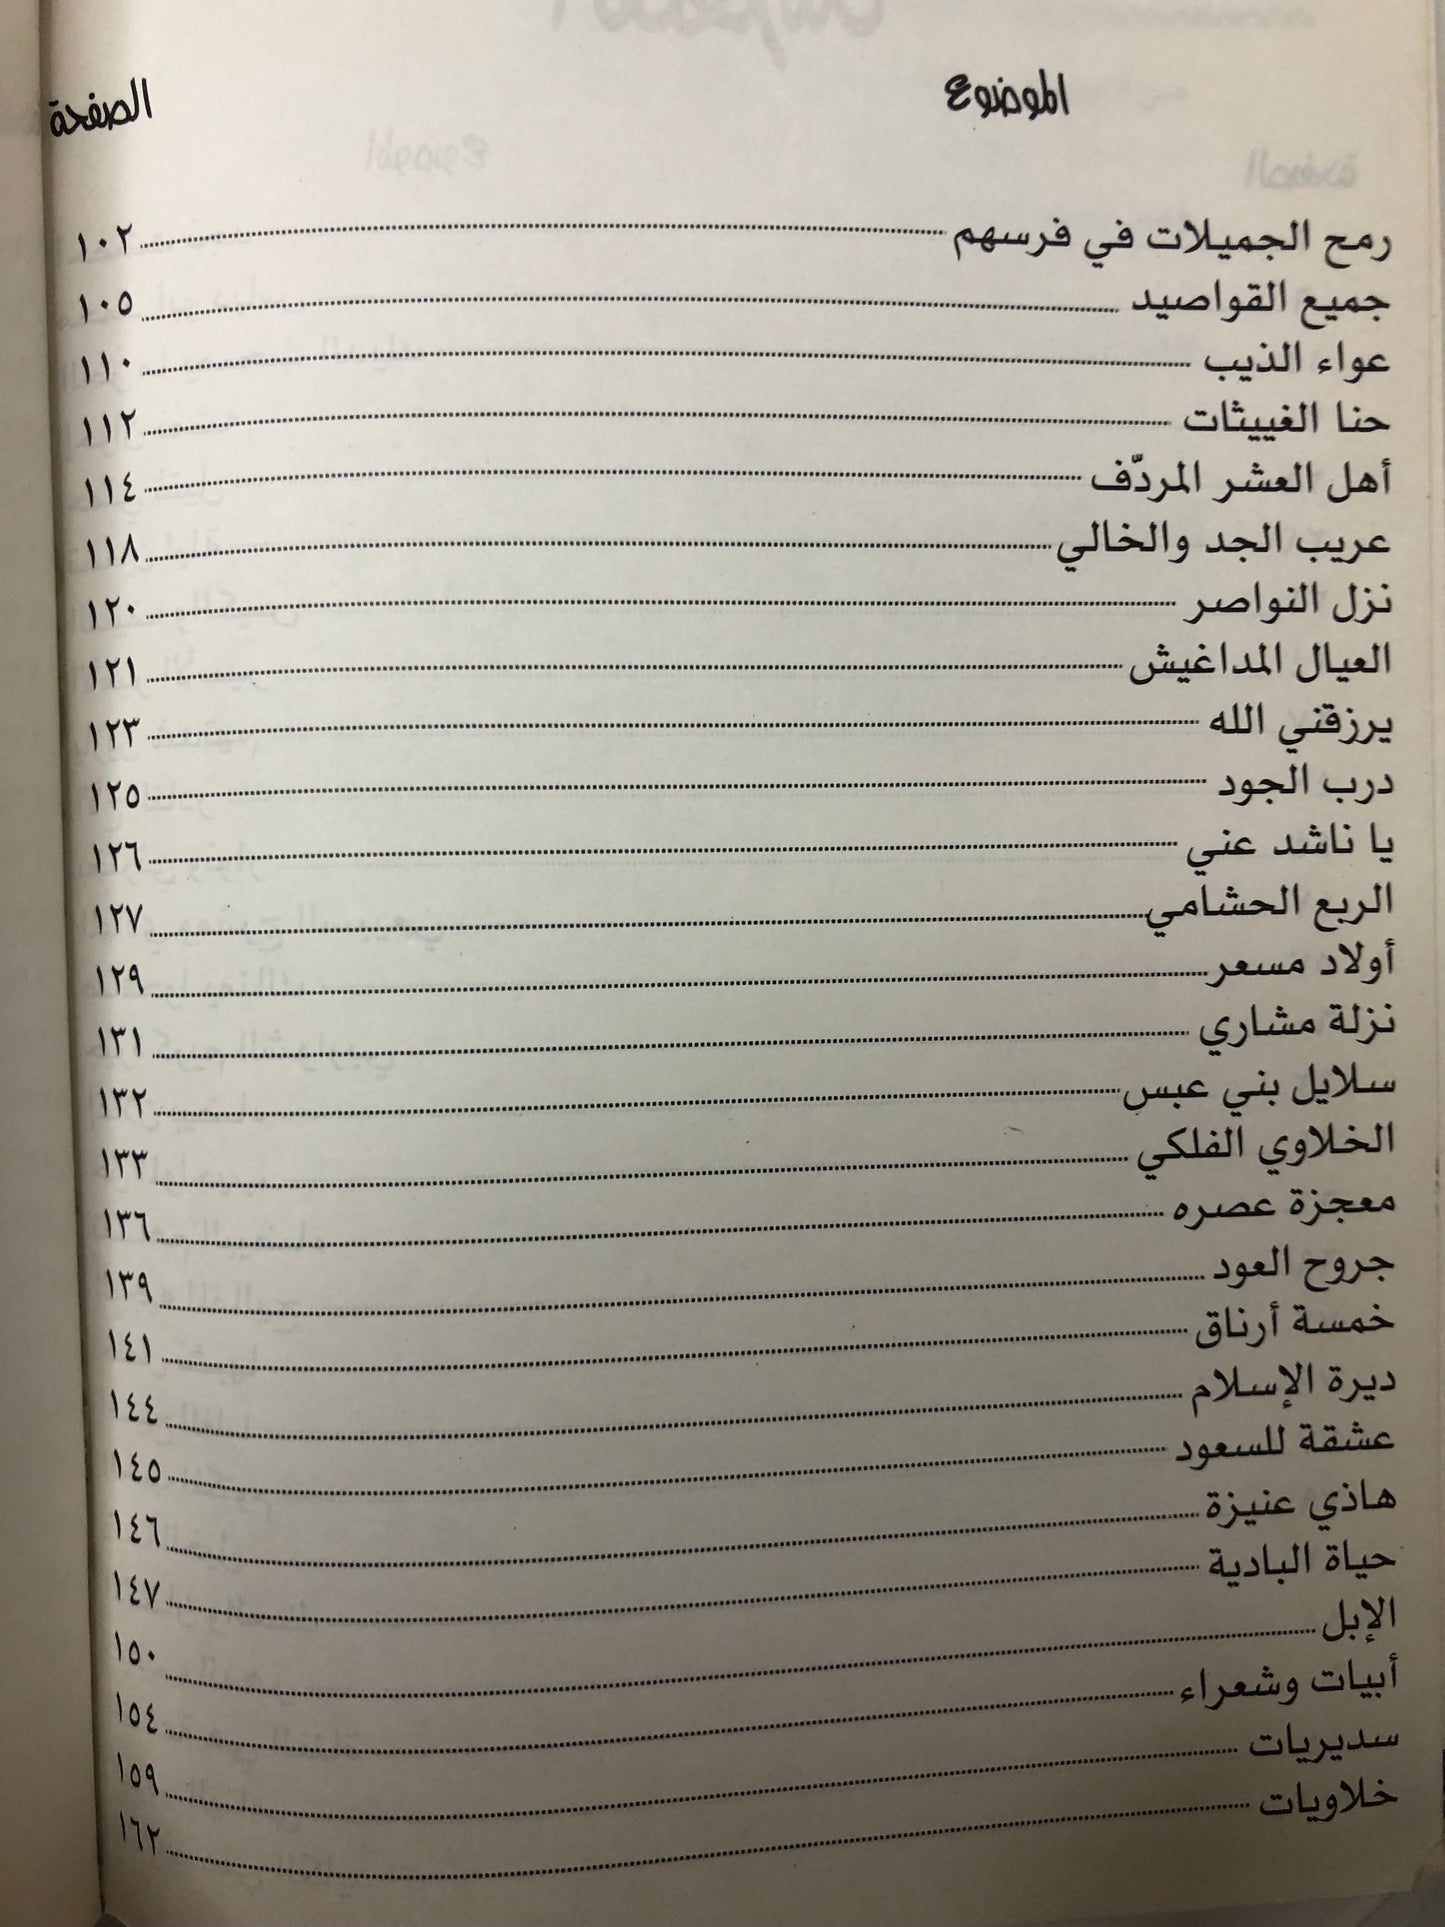 الموضوع الصفحة
رمح الجميلات في فرسهم ١٠٢
جميع القواصيد ١٠٥
عواء الذيب ١١٠
حنا الغييثات ١١٢
أهل العشر المردّف ١١٤
عريب الجد والخالي ١١٨
نزل النواصر ١٢٠
العيال المداغيش ١٢١
يرزقني الله ١٢٣
درب الجود ١٢٥
يا ناشد عني ١٢٦
الربع الحشامي ١٢٧
أولاد مسعر ١٢٩
نزلة مشاري ١٣١
سلايل بني عبس ١٣٢
الخلاوي الفلكي ١٣٣
معجزة عصره ١٣٦
جروح العود ١٣٩
خمسة أرناق ١٤١
ديرة الإسلام ١٤٤
عشقة للسعود ١٤٥
هاذي عنيزة ١٤٦
حياة البادية ١٤٧
الإبل ١٥٠
أبيات وشعراء ١٥٤
سديريات ١٥٩
خلاويات ١٦٢